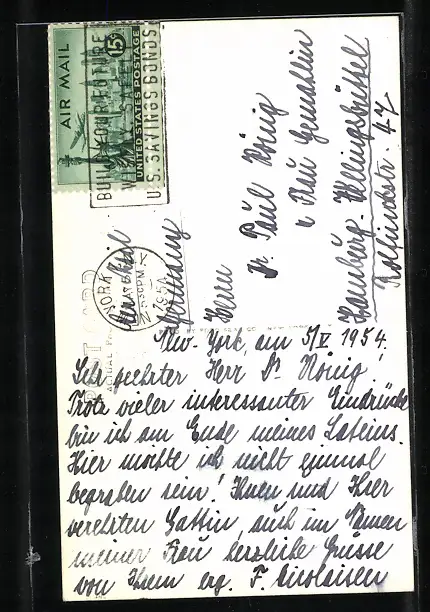 AIR MAIL
15¢
UNITED STATES POSTAGE
BUILD YOUR FUTURE
U.S. SAVINGS BONDS
YORK
5 30 PM
1954
Air Mail
Germany
Herrn
Dr. Paul König
u Frau Gemahlin
Hamburg-Wellingsbüttel
Rolfinckstr. 47
New-York, am 5/V 1954.
Sehr geehrter Herr Dr König!
Trotz vieler interessanter Eindrücke
bin ich am Ende meines Lateins.
Hier möchte ich nicht einmal
begraben sein! Ihnen und Ihrer
verehrten Gattin, auch im Namen
meiner Frau herzliche Grüsse
von Ihrem erg. F.